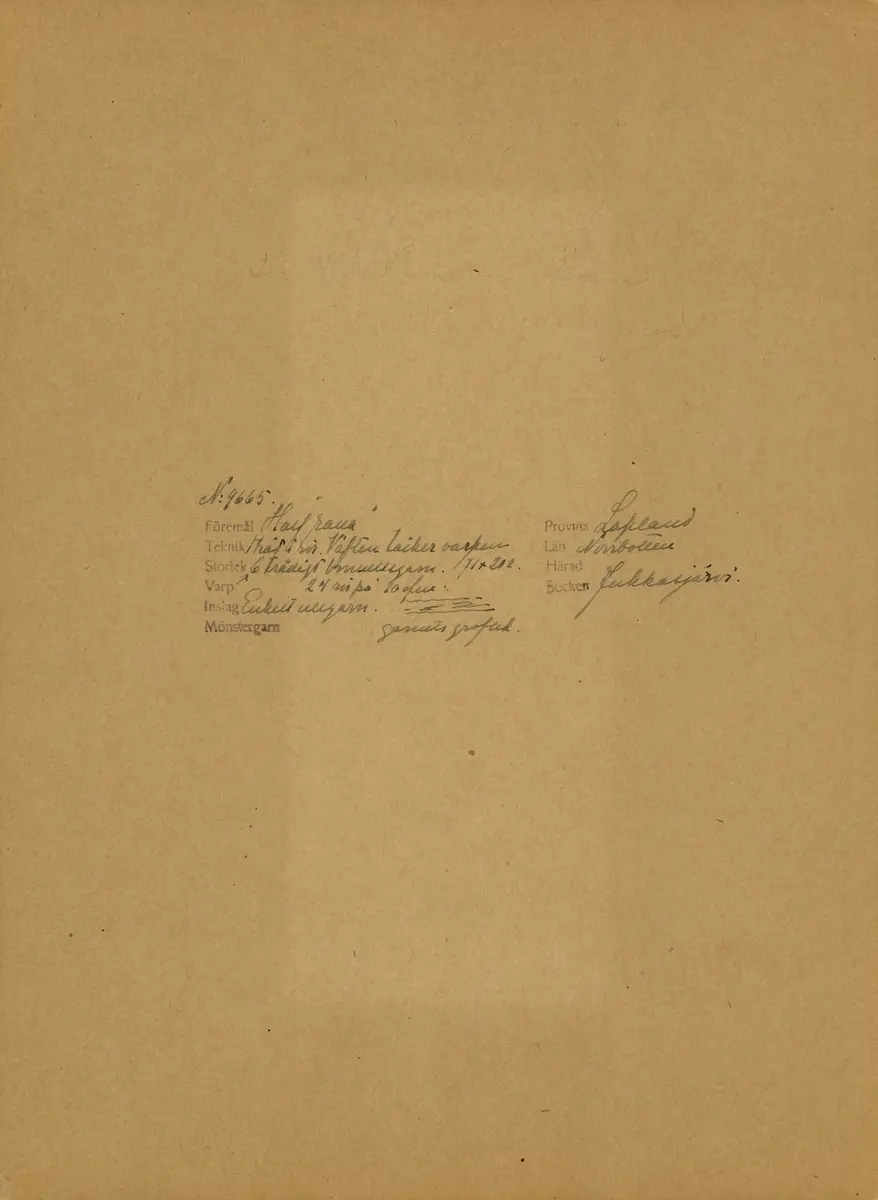 N: 9665.
Föremål "Half rana"
Teknik 1 tråd i rör. Väften täcker varpen
Storlek 6 trådigt bomullsgarn. 171 x 202.
Varp 24 rör på 10 cm.
Inslag Enkelt ullgarn.
Mönstergarn garnets groflek.
Provins Lapland
Län Norrbotten
Härad
Socken Jukkasjärvi.